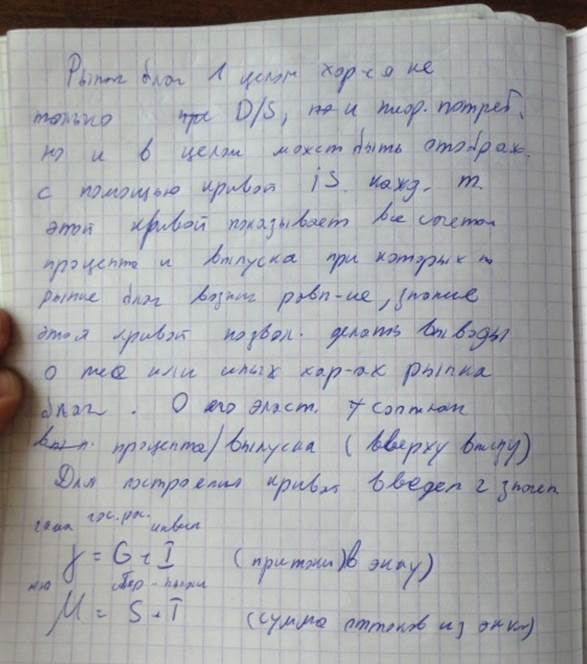 Рынок благ в целом хар-ся не
только при D/S, но и теор. потреб.
но и в целом может быть отображ.
с помощью кривой iS. кажд. т.
этой кривой показывает все сочетан
процента и выпуска при которых на
рынке благ возник равн-ие, знание
этой кривой позвол. делать выводы
о тех или иных хар-ах рынка
благ. О его эласт.
процента/выпуска (вверху внизу)
Для построения кривой введем 2 знач
гама гос.рас. инвест
γ = G + I (притоки) в эку)
мю
M = S + T (сумма оттоков из экк)